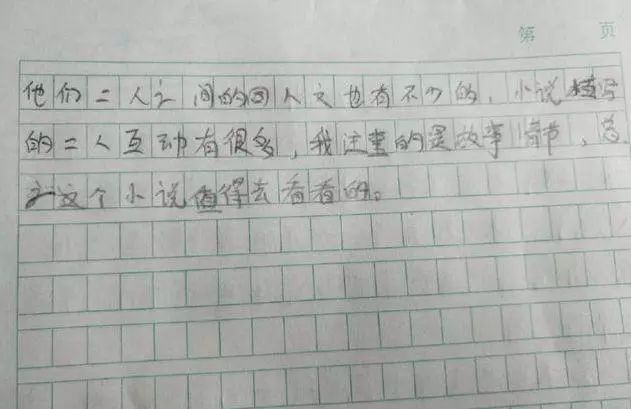 第 页
他们二人之间的同人文也有不少的，小说描写
的二人互动有很多，我注重的是故事情节，总
之这个小说值得去看看的。